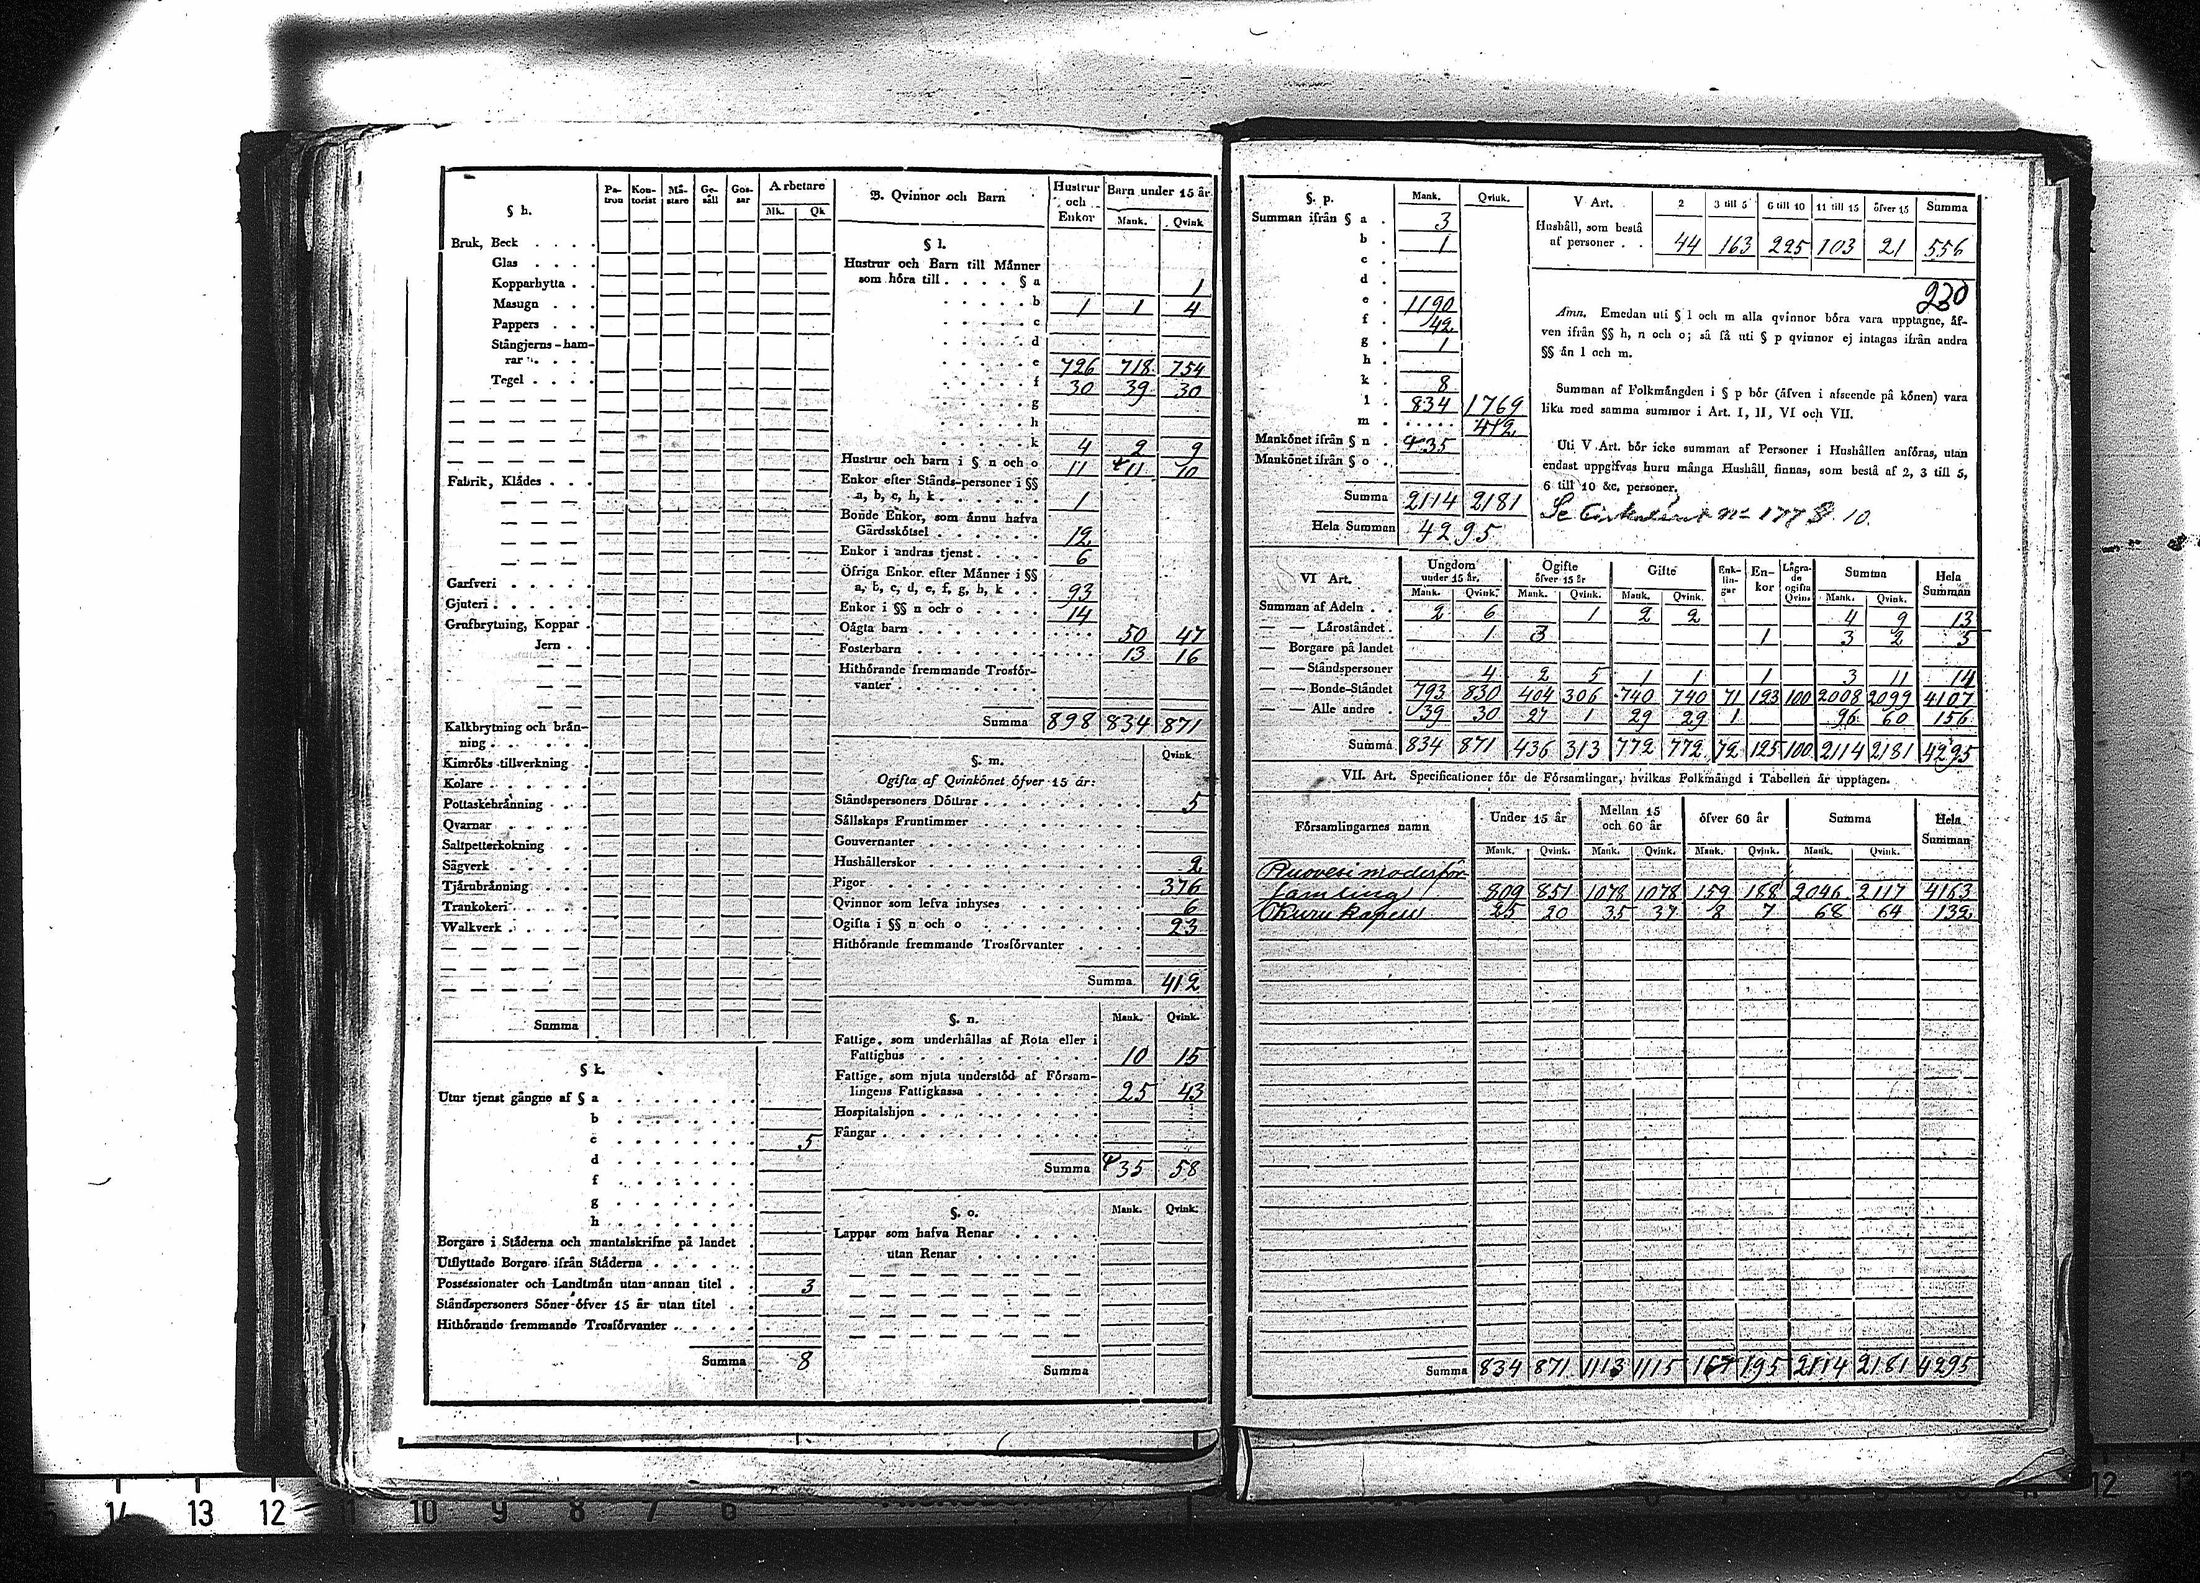 § h.
Pa-
tron
Kon-
torist
Må-
stare
Ge-
säll
Gos-
sar
Arbetare
Mk. Qk
Bruk, Beck . . . .
Glas . . . .
Kopparhytta . .
Masugn . . .
Pappers . . .
Stångjerns-ham-
rar . . . .
Tegel . . . .
Fabrik, Klädes . . .
Garfveri . . . . .
Gjuteri . . . . . .
Grufbrytning, Koppar .
Jern . .
Kalkbrytning och brän-
ning . . . . . .
Kimröks tillverkning .
Kolare . . . . . .
Pottaskebränning . . .
Qvarnar . . . . .
Saltpetterkokning . .
Sågverk . . . . .
Tjärubränning . . . .
Trankokeri . . . . .
Walkverk . . . . .
Summa
§ k.
Utur tjenst gångne af § a . . . . . . .
b . . . . . . .
c . . . . . . . 5
d . . . . . . .
f . . . . . . .
g . . . . . . .
h . . . . . . .
Borgare i Städerna och mantalskrifne på landet .
Utflyttade Borgare ifrån Städerna . . . . .
Possessionater och Landtmän utan annan titel . . 3
Ståndspersoners Söner öfver 15 år utan titel . .
Hithörande fremmande Trosförvanter . . . . .
Summa 8
B. Qvinnor och Barn
Hustrur
och
Enkor
Barn under 15 år
Mank. Qvink
§ l.
Hustrur och Barn till Männer
som höra till . . . . § a 1
b 1 1 4
c
d
e 726 718 754
f 30 39 30
g
h
k 4 2 9
Hustrur och barn i § n och o 11 11 10
Enkor efter Stånds-personer i §§
a, b, c, h, k . . . . . . 1
Bonde Enkor, som ännu hafva
Gårdsskötsel . . . . . . 12
Enkor i andras tjenst . . . . . 6
Öfriga Enkor efter Männer i §§
a, b, c, d, e, f, g, h, k . . 93
Enkor i §§ n och o . . . . 14
Oägta barn . . . . . . . 50 47
Fosterbarn . . . . . . . 13 16
Hithörande fremmande Trosför-
vanter . . . . . . . .
Summa 898 834 871
§. m.
Qvink.
Ogifta af Qvinkönet öfver 15 år:
Ståndspersoners Döttrar . . . . . . . . 5
Sällskaps Fruntimmer . . . . . . . . .
Gouvernanter . . . . . . . . . . .
Hushållerskor . . . . . . . . . . . 2
Pigor . . . . . . . . . . . . . 376
Qvinnor som lefva inhyses . . . . . . . 6
Ogifta i §§ n och o . . . . . . . . . 23
Hithörande fremmande Trosförvanter . . . .
Summa 412
§. n.
Mank. Qvink.
Fattige, som underhållas af Rota eller i
Fattighus . . . . . . . . . 10 15
Fattige, som njuta understöd af Försam-
lingens Fattigkassa . . . . . . . 25 43
Hospitalshjon . . . . . . . . . .
Fångar . . . . . . . . . . . .
Summa 35 58
§. o.
Mank. Qvink.
Lappar som hafva Renar . . . . .
utan Renar . . . . . .
Summa
§. p.
Mank. Qvink.
Summan ifrån § a . 3
b . 1
c .
d .
e . 1190
f . 42
g . 1
h .
k . 8
l . 834 1769
m . . . . . . 412
Mankönet ifrån § n . 35
Mankönet ifrån § o .
Summa 2114 2181
Hela Summan 4295
V Art. 2 3 till 5 6 till 10 11 till 15 öfver 15 Summa
Hushåll, som bestå
af personer . . 44 163 225 103 21 556
230
Anm. Emedan uti § l och m alla qvinnor böra vara upptagne, äf-
ven ifrån §§ h, n och o; så få uti § p qvinnor ej intagas ifrån andra
§§ än l och m.
Summan af Folkmängden i § p bör (äfven i afseende på könen) vara
lika med samma summor i Art. I, II, VI och VII.
Uti V Art. bör icke summan af Personer i Hushållen anföras, utan
endast uppgifvas huru många Hushåll finnas, som bestå af 2, 3 till 5,
6 till 10 &c. personer.
Se Cirkuläret 10.
VI Art.
Ungdom
under 15 år.
Ogifte
öfver 15 år
Gifte
Enk-
lin-
gar
En-
kor
Lägra-
de
ogifta
Qvinr.
Summa
Hela
Summan
Mank. Qvink. Mank. Qvink. Mank. Qvink. Mank. Qvink.
Summan af Adeln . . 2 6 1 2 2 4 9 13
— — Läroståndet . 1 3 1 3 2 5
— Borgare på landet
— — Ståndspersoner 4 2 5 1 1 1 3 11 14
— — Bonde-Ståndet 793 830 404 306 740 740 71 123 100 2008 2099 4107
— — Alle andre . 39 30 27 1 29 29 1 96 60 156
Summa 834 871 436 313 772 772 72 125 100 2114 2181 4295
VII. Art. Specificationer för de Församlingar, hvilkas Folkmängd i Tabellen är upptagen.
Församlingarnes namn
Under 15 år
Mellan 15
och 60 år
öfver 60 år
Summa
Hela
Summan
Mank. Qvink. Mank. Qvink. Mank. Qvink. Mank. Qvink.
Ruovesi moderför-
samling 809 851 1078 1078 159 188 2046 2117 4163
Kuru kapell 25 20 35 37 8 7 68 64 132
Summa 834 871 1113 1115 167 195 2114 2181 4295
14 13 12 11 10 9 8 7 6
12